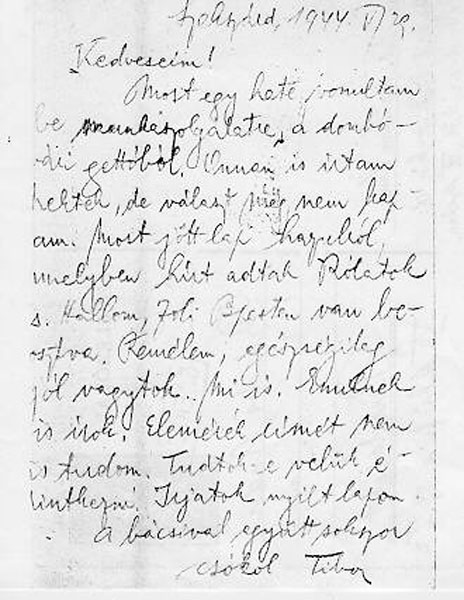 1944. VI/29.
Kedveseim!
Most egy hete vonultam
be munkaszolgálatra, a dombó-
vári gettóból. Onnan is írtam
nektek, de választ még nem kap-
tam. Most jött lap hazulról,
amelyben hírt adtak Rólatok
is. Hallom, Zoli Pesten van be-
osztva. Remélem, egészségileg
jól vagytok. Mi is.
is írok. Elemérék címét nem
is tudom. Tudtok-e velük é-
rintkezni. Írjatok nyílt lapon.
A bácsival együtt sokszor
csókol Tibor